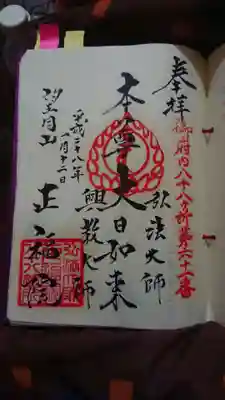 奉拝
御府内八十八ヶ所第六十一番
弘法大師
本尊大日如来
興教大師
平成二十八年
一月十二日
望月山
正福院